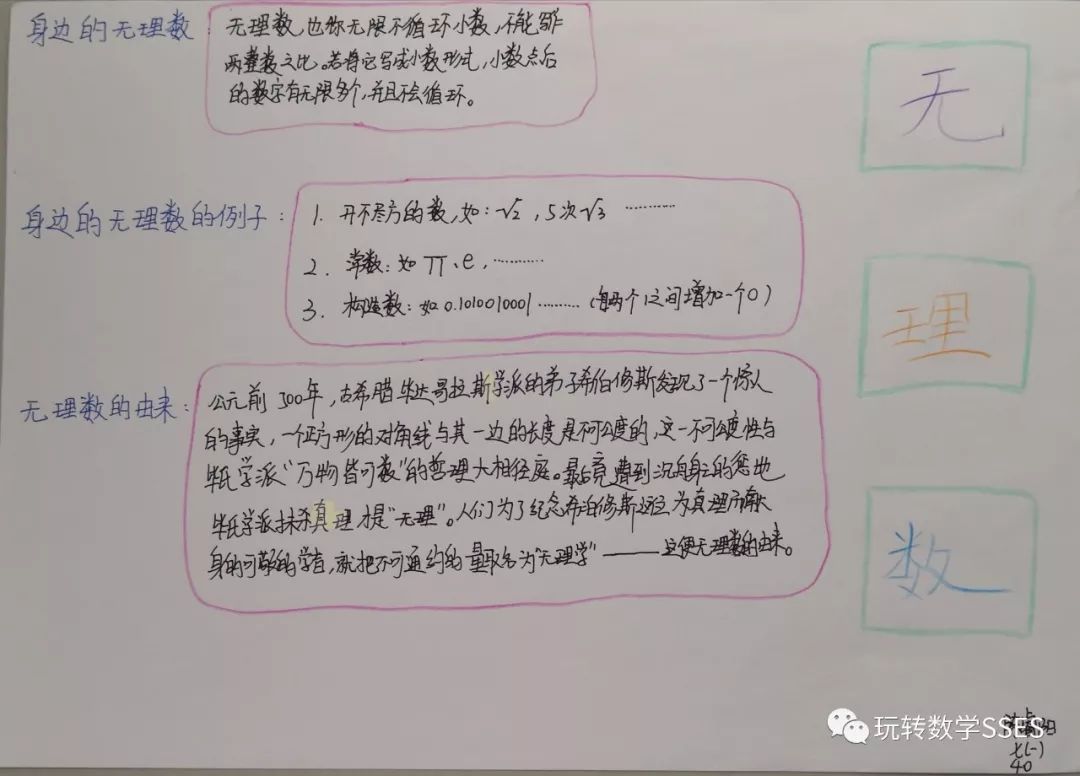 身边的无理数:
无理数,也称无限不循环小数,不能写作
两整数之比。若将它写成小数形式,小数点后
的数字有无限多个,并且不会循环。
身边的无理数的例子:
1. 开不尽方的数,如:√2,5次√3 …………
2. 常数:如π、e,…………
3. 构造数:如0.1010010001………(每两个1之间增加一个0)
无理数的由来:
公元前500年,古希腊毕达哥拉斯学派的弟子希伯修斯发现了一个惊人
的事实,一个正方形的对角线与其一边的长度是不可公度的,这一不可公度性与
毕氏学派“万物皆可数”的哲理大相径庭。最后竟遭到沉身的惩也
毕氏学派抹杀真理才是“无理”。人们为了纪念希泊修斯这位为真理而献
身的可敬的学者,就把不可通约的量取名为“无理学”——这便无理数的由来。
无
理
数
玩转数学SSES
七(一)
40